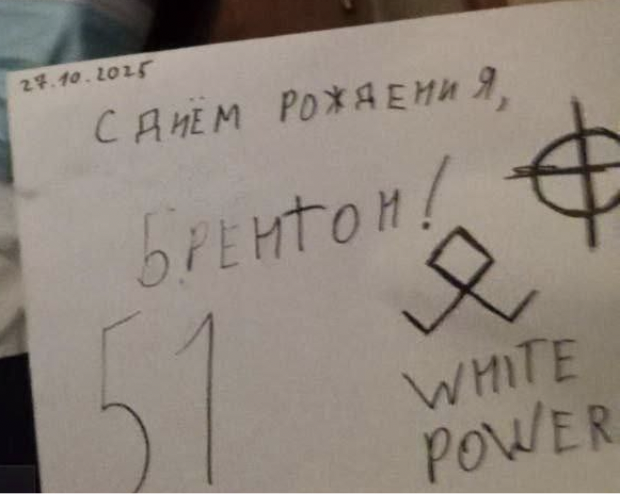 27.10.2025
С ДНЁМ РОЖДЕНИЯ,
БРЕНТОН!
51
WHITE
POWER